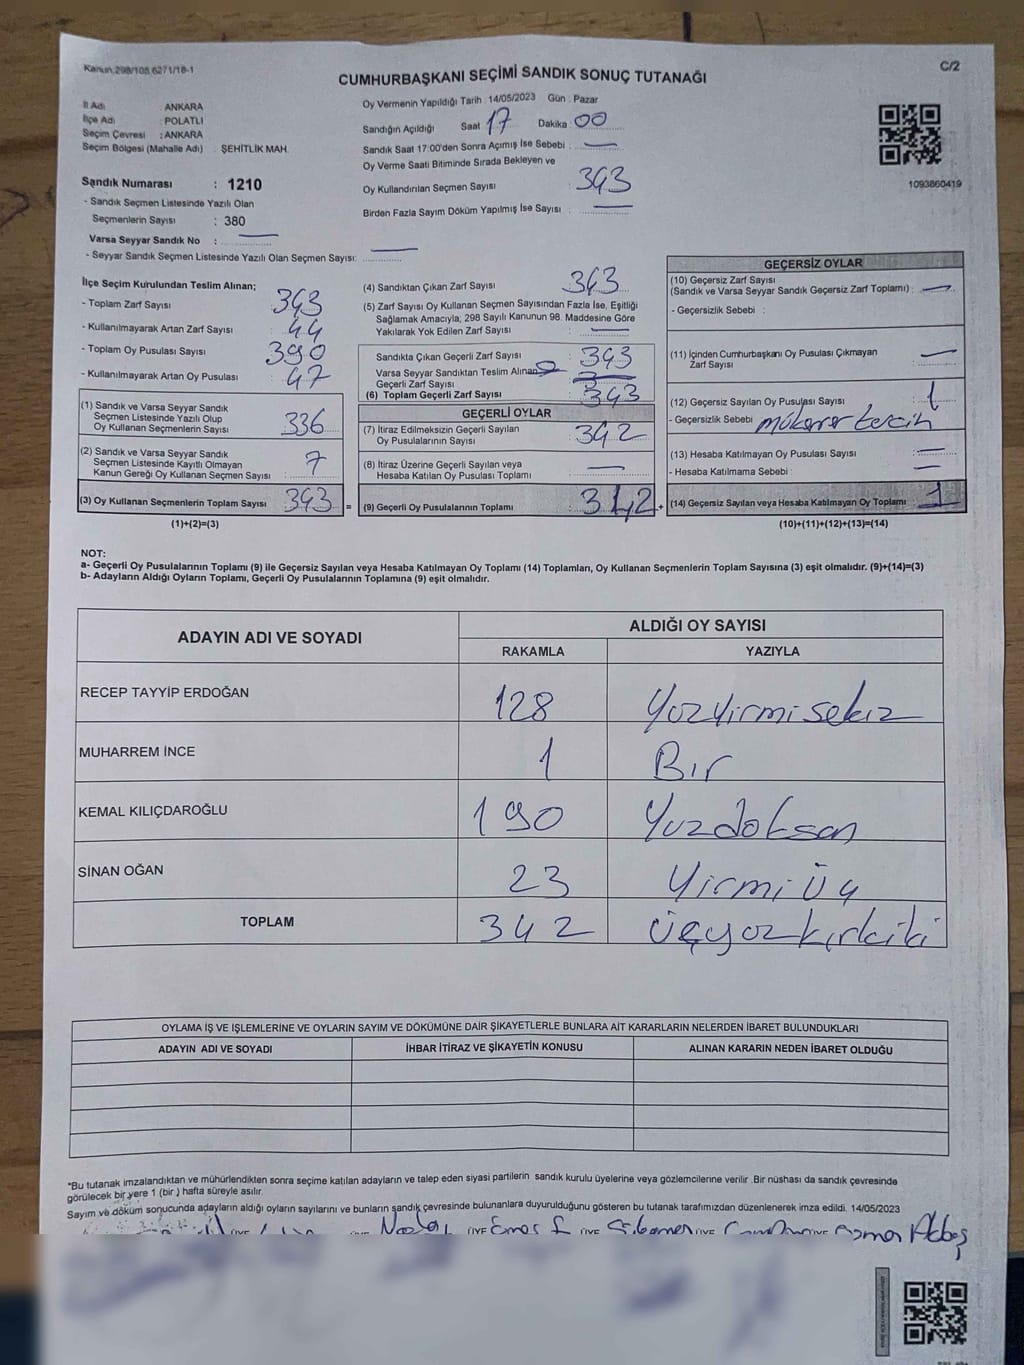 Kanun 298/105,6271/18-1
C/2
CUMHURBAŞKANI SEÇİMİ SANDIK SONUÇ TUTANAĞI
İl Adı : ANKARA
İlçe Adı : POLATLI
Seçim Çevresi : ANKARA
Seçim Bölgesi (Mahalle Adı) : ŞEHİTLİK MAH.
Sandık Numarası : 1210
- Sandık Seçmen Listesinde Yazılı Olan
Seçmenlerin Sayısı : 380
Varsa Seyyar Sandık No : —
- Seyyar Sandık Seçmen Listesinde Yazılı Olan Seçmen Sayısı: —
Oy Vermenin Yapıldığı Tarih : 14/05/2023 Gün : Pazar
Sandığın Açıldığı Saat 17 Dakika : 00
Sandık Saat 17:00'den Sonra Açımış İse Sebebi : —
Oy Verme Saati Bitiminde Sırada Bekleyen ve
Oy Kullandırılan Seçmen Sayısı : 343
Birden Fazla Sayım Döküm Yapılmış İse Sayısı : —
1093860419
İlçe Seçim Kurulundan Teslim Alınan;
- Toplam Zarf Sayısı 343
- Kullanılmayarak Artan Zarf Sayısı 44
- Toplam Oy Pusulası Sayısı 390
- Kullanılmayarak Artan Oy Pusulası 47
(1) Sandık ve Varsa Seyyar Sandık
Seçmen Listesinde Yazılı Olup
Oy Kullanan Seçmenlerin Sayısı 336
(2) Sandık ve Varsa Seyyar Sandık
Seçmen Listesinde Kayıtlı Olmayan
Kanun Gereği Oy Kullanan Seçmen Sayısı : 7
(3) Oy Kullanan Seçmenlerin Toplam Sayısı 343 =
(1)+(2)=(3)
(4) Sandıktan Çıkan Zarf Sayısı 343
(5) Zarf Sayısı Oy Kullanan Seçmen Sayısından Fazla İse, Eşitliği
Sağlamak Amacıyla; 298 Sayılı Kanunun 98. Maddesine Göre
Yakılarak Yok Edilen Zarf Sayısı : —
Sandıkta Çıkan Geçerli Zarf Sayısı : 343
Varsa Seyyar Sandıktan Teslim Alınan
Geçerli Zarf Sayısı
(6) Toplam Geçerli Zarf Sayısı : 343
GEÇERLİ OYLAR
(7) İtiraz Edilmeksizin Geçerli Sayılan
Oy Pusulalarının Sayısı : 342
(8) İtiraz Üzerine Geçerli Sayılan veya
Hesaba Katılan Oy Pusulaları Toplamı : —
(9) Geçerli Oy Pusulalarının Toplamı : 342 +
GEÇERSİZ OYLAR
(10) Geçersiz Zarf Sayısı
(Sandık ve Varsa Seyyar Sandık Geçersiz Zarf Toplamı) : —
- Geçersizlik Sebebi :
(11) İçinden Cumhurbaşkanı Oy Pusulası Çıkmayan
Zarf Sayısı : —
(12) Geçersiz Sayılan Oy Pusulası Sayısı : 1
- Geçersizlik Sebebi mükerrer tercih
(13) Hesaba Katılmayan Oy Pusulası Sayısı : —
- Hesaba Katılmama Sebebi : —
(14) Geçersiz Sayılan veya Hesaba Katılmayan Oy Toplamı : 1
(10)+(11)+(12)+(13)=(14)
NOT:
a- Geçerli Oy Pusulalarının Toplamı (9) ile Geçersiz Sayılan veya Hesaba Katılmayan Oy Toplamı (14) Toplamları, Oy Kullanan Seçmenlerin Toplam Sayısına (3) eşit olmalıdır. (9)+(14)=(3)
b- Adayların Aldığı Oyların Toplamı, Geçerli Oy Pusulalarının Toplamına (9) eşit olmalıdır.
ADAYIN ADI VE SOYADI ALDIĞI OY SAYISI
RAKAMLA YAZIYLA
RECEP TAYYİP ERDOĞAN 128 Yüzyirmi sekiz
MUHARREM İNCE 1 Bir
KEMAL KILIÇDAROĞLU 190 Yüzdoksan
SİNAN OĞAN 23 Yirmi Üç
TOPLAM 342 üçyüzkırkiki
OYLAMA İŞ VE İŞLEMLERİNE VE OYLARIN SAYIM VE DÖKÜMÜNE DAİR ŞİKAYETLERLE BUNLARA AİT KARARLARIN NELERDEN İBARET BULUNDUKLARI
ADAYIN ADI VE SOYADI İHBAR İTİRAZ VE ŞİKAYETİN KONUSU ALINAN KARARIN NEDEN İBARET OLDUĞU
*Bu tutanak imzalandıktan ve mühürlendikten sonra seçime katılan adayların ve talep eden siyasi partilerin sandık kurulu üyelerine veya gözlemcilerine verilir. Bir nüshası da sandık çevresinde
görülecek bir yere 1 (bir ) hafta süreyle asılır.
Sayım ve döküm sonucunda adayların aldığı oyların sayılarını ve bunların sandık çevresinde bulunanlara duyurulduğunu gösteren bu tutanak tarafımızdan düzenlenerek imza edildi. 14/05/2023